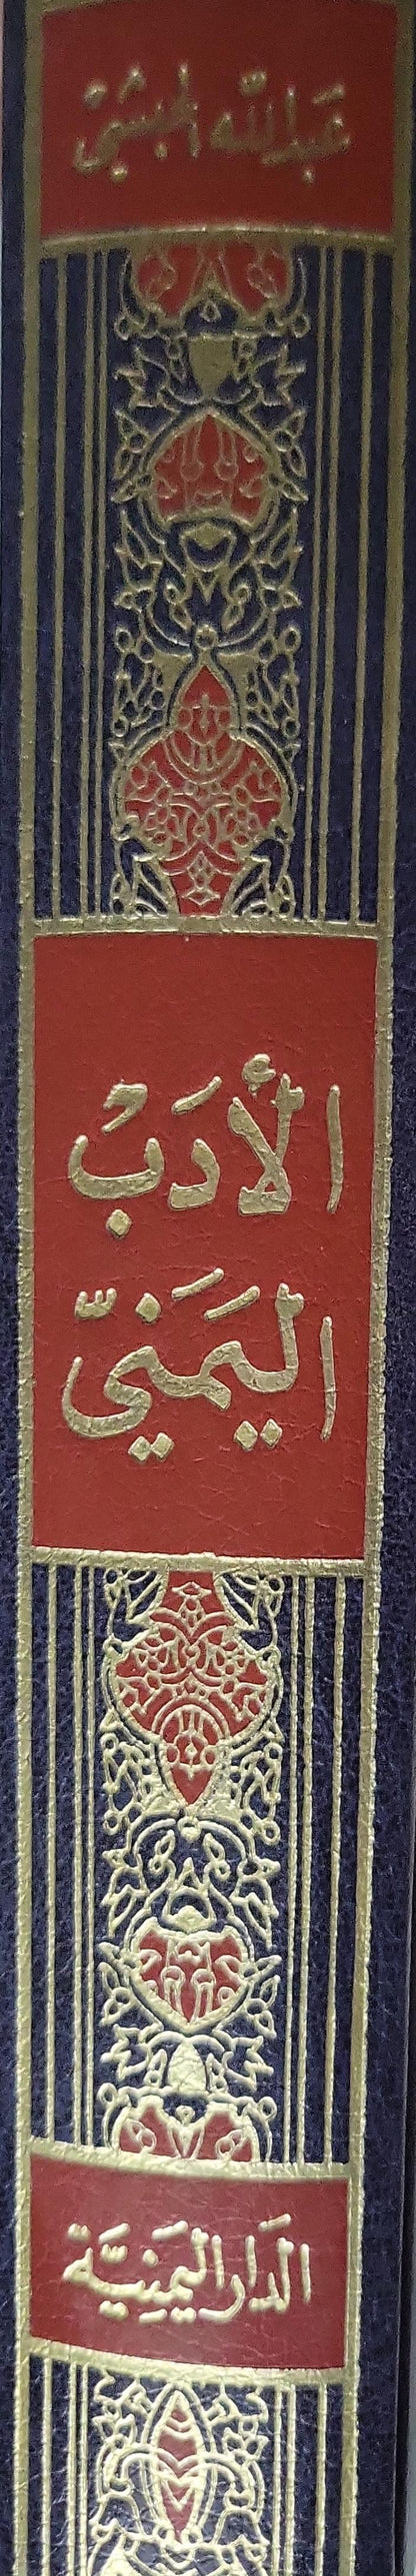 عَبدالله الحبشيْ
الأَدَبُ
اليَمَنيّ
الدَار اليَمَنِيَّة